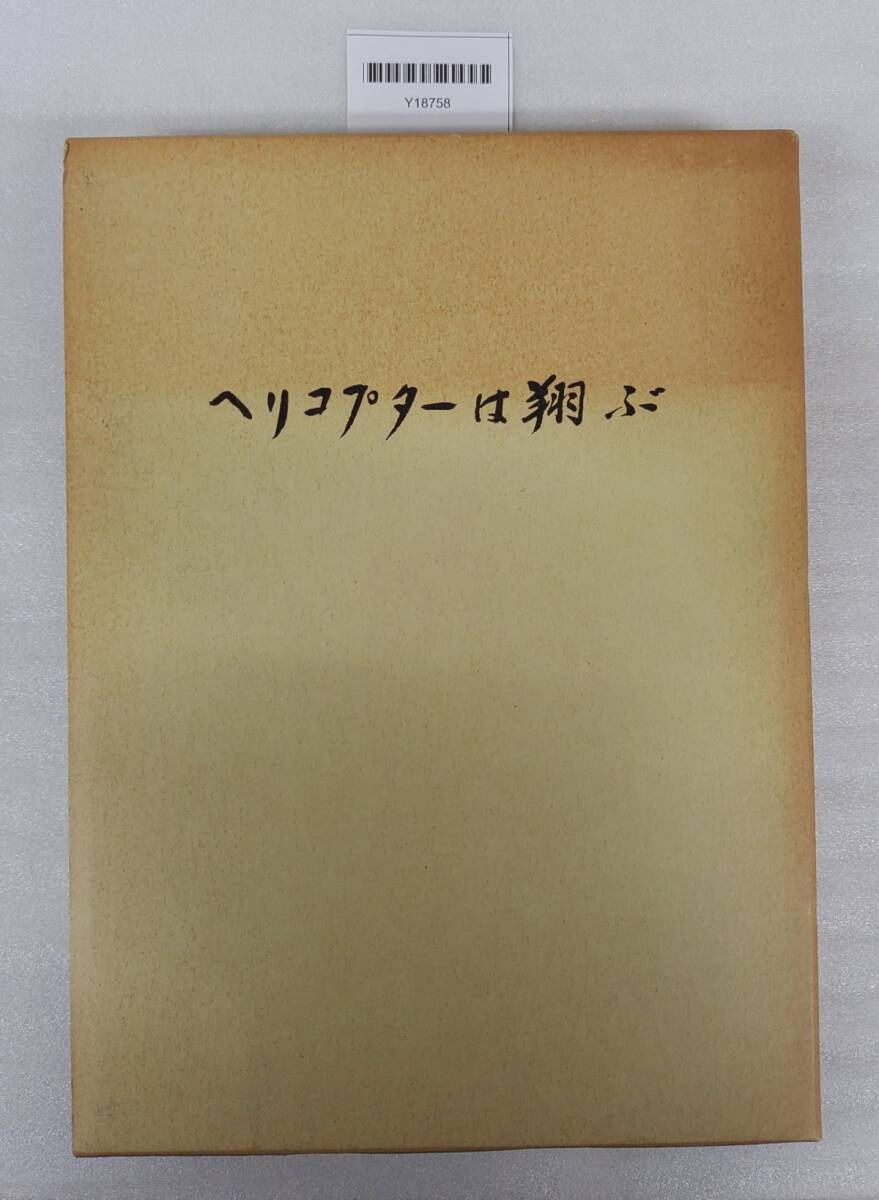 Y18758
ヘリコプターは翔ぶ